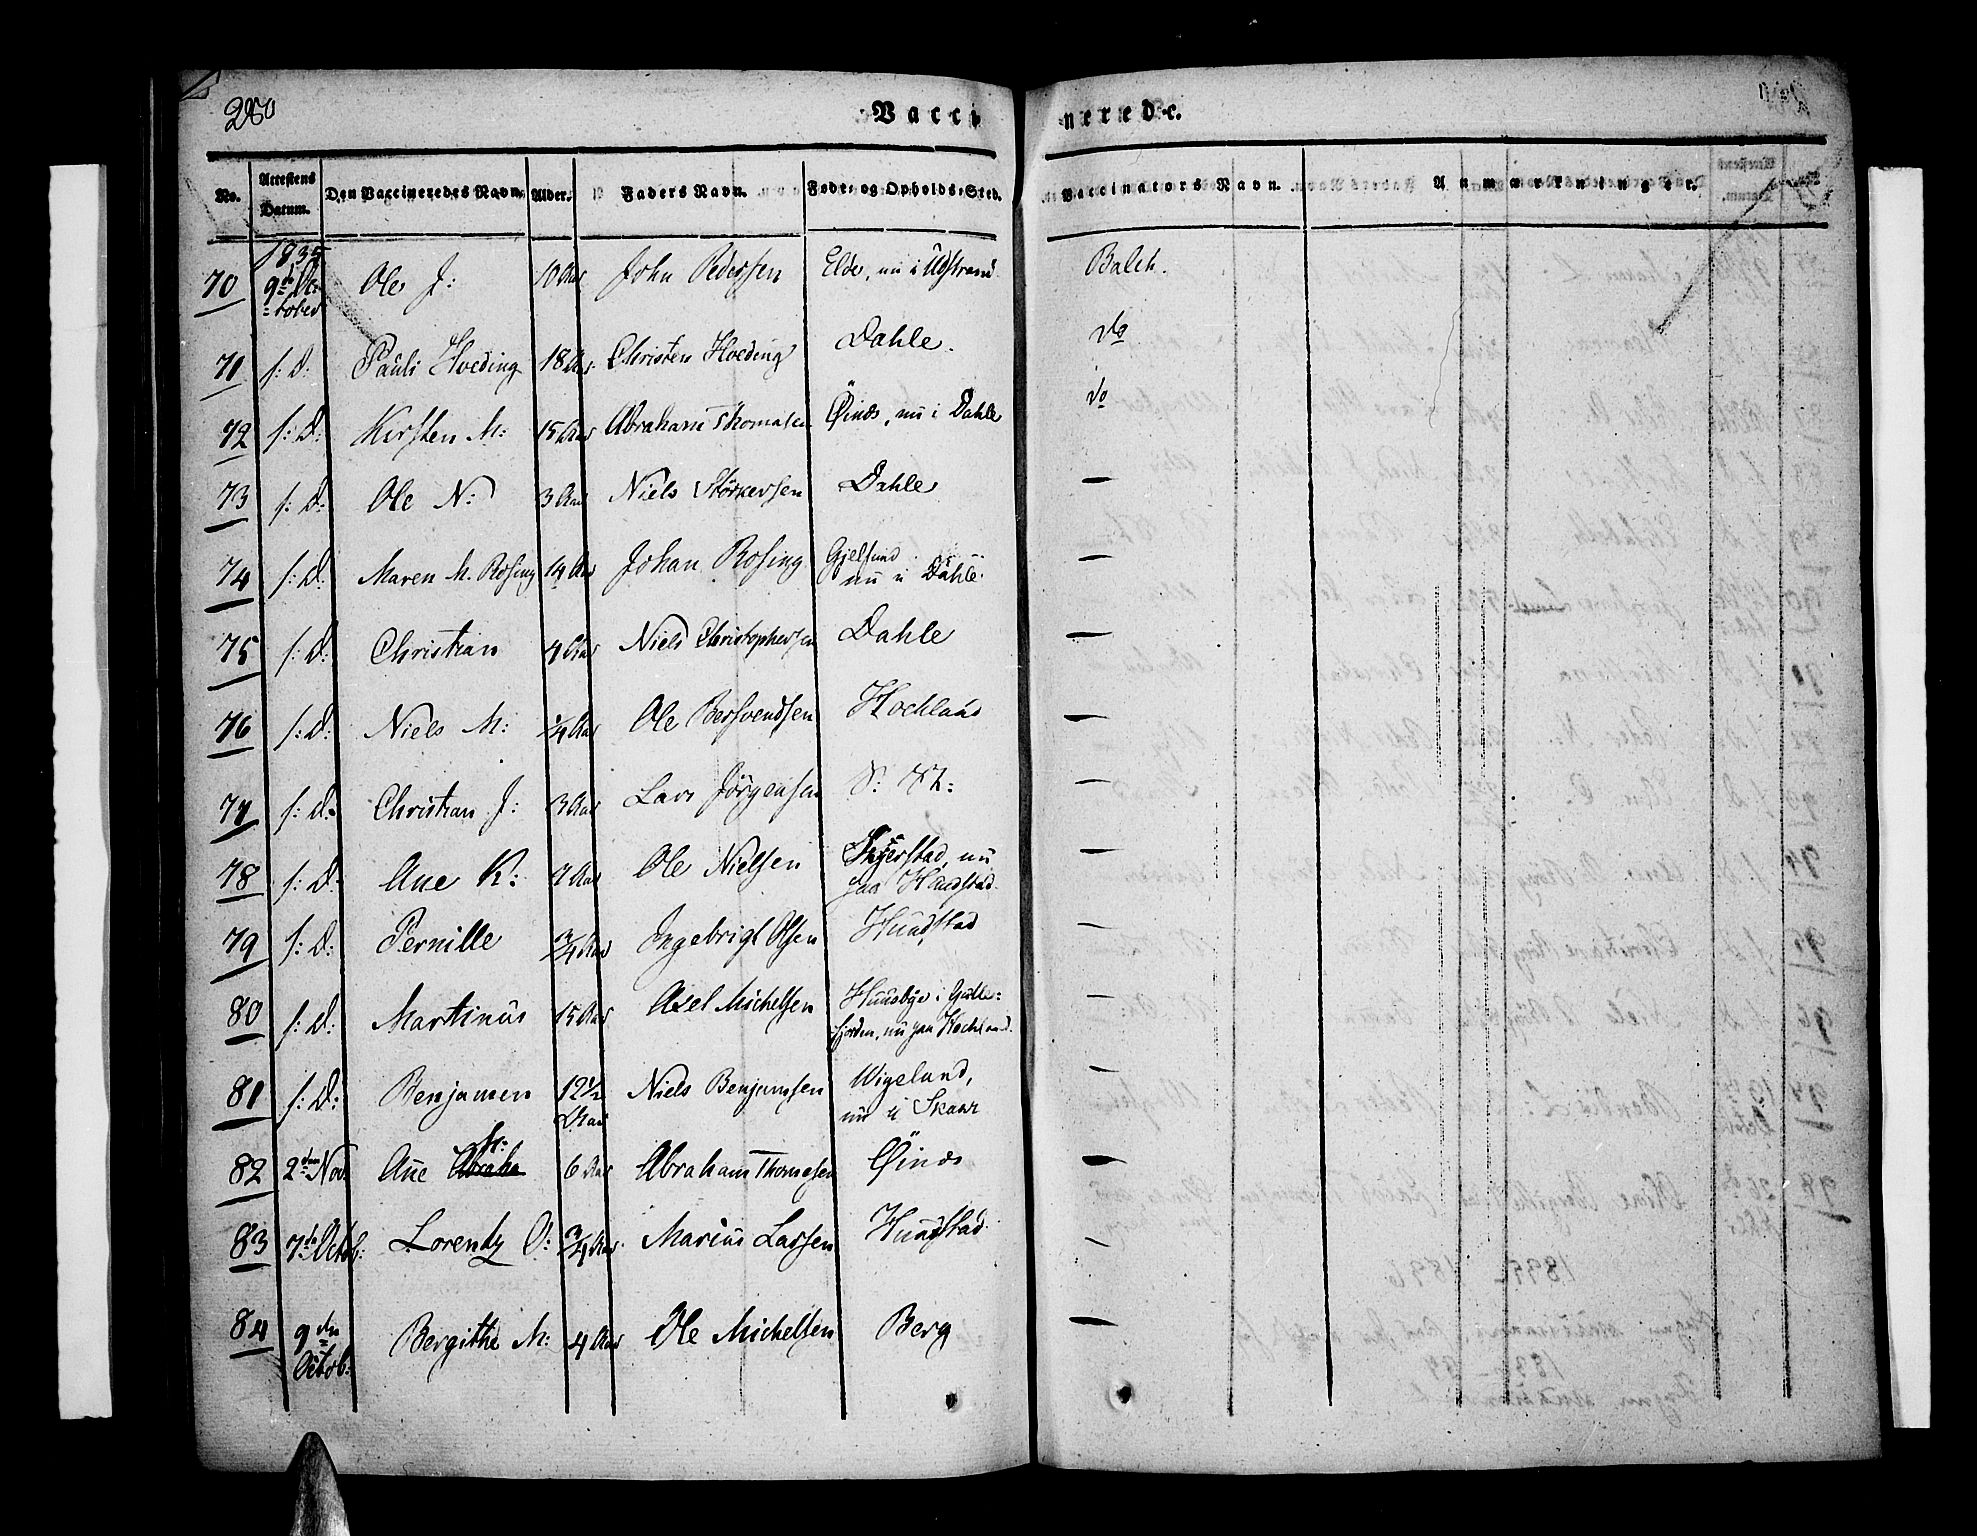 280 Vaccinerede.
No. Attestens Datum. Den Vaccineredes Navn. Alder. Faders Navn. Føde- og Opholds-Sted. Vaccinators Navn. Anmærkninger.
1835
70 9de Oc- Ole J: 10 Aar John Pedersen Elde, nu i Udstrand Balch.
=tober
71 s: D: Pauli Hveding 18 Aar Christen Hveding Dahle. do
72 s: D: Kirsten M: 15 Aar Abraham Thomasen Øinæs, nu i Dahle do
73 s: D: Ole N: 3 Aar Niels Størkersen Dahle —
74 s: D: Maren M. Rosing 14 Aar Johan Rosing Gjelsund —
nu i Dahle.
75 s: D: Christian 4 Aar Niels Christophersen Dahle —
76 s: D: Niels M: 1/4 Aar Ole Bersvendsen Hochland —
77 s: d: Christian J: 3 Aar Lars Jörgensen S: St: —
78 s: D: Ane K: 4 Aar Ole Nielsen nu —
paa Hundstad.
79 s: D: Pernille 3/4 Aar Ingebrigt Olsen Hundstad —
80 s: D: Martinus 15 Aar Axel Michelsen Huusbye i Gulle= —
fjorden, nu paa Hochland.
81 s: D: Benjamen 12 1/2 Niels Benjamsen Wigeland, —
Aar nu i Skaar
M:
82 2den Nov: Ane Abraha 6 Aar Abraham Thomasen Øinæs —
83 7de Octob: Lorentz O: 3/4 Aar Marius Larsen Hundstad. —
84 9den Bergithe M: 4 Aar Ole Michelsen Berg —
Octob: